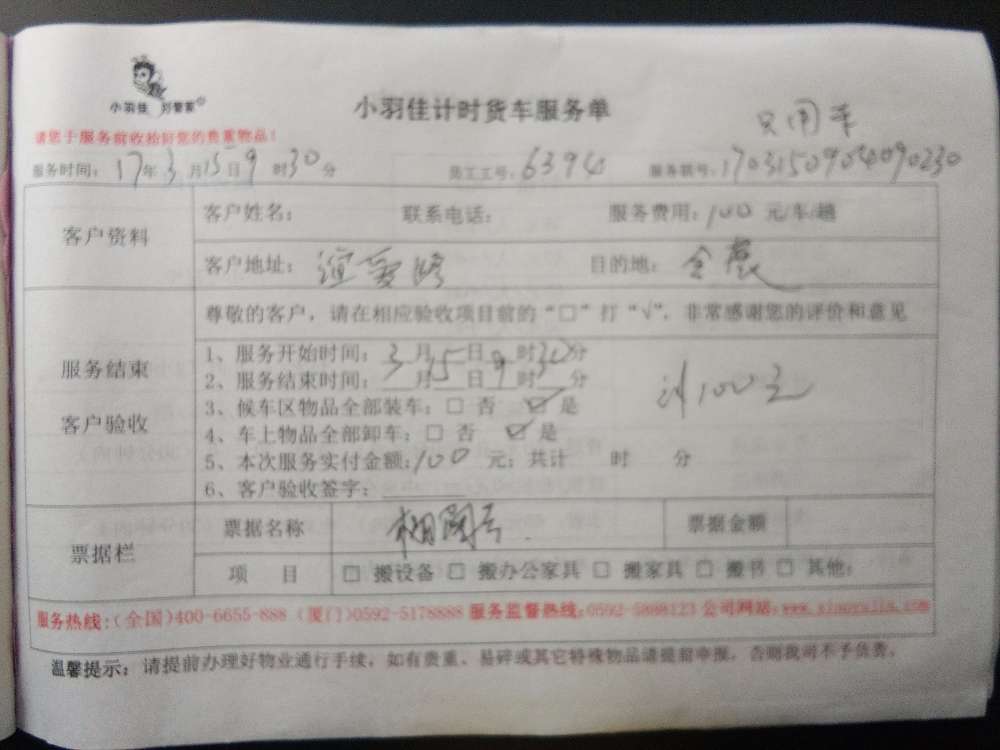 小羽佳 好管家
小羽佳计时货车服务单
只用车
请您于服务前收拾好您的贵重物品！
服务时间：17年3月15日9时30分 员工工号：6394 服务联号：1703150904090230
客户资料
客户姓名： 联系电话： 服务费用：100 元/车/趟
客户地址：谊爱路 目的地：
尊敬的客户，请在相应验收项目前的“□”打“√”，非常感谢您的评价和意见
服务结束
客户验收
1、服务开始时间：3月15日9时30分
2、服务结束时间： 月15日9时30分
3、候车区物品全部装车：□ 否 ☑ 是
4、车上物品全部卸车：□ 否 ☑ 是
5、本次服务实付金额：100 元；共计 时 分
6、客户验收签字：
计100元
票据栏
票据名称 票据金额
项 目 □ 搬设备 □ 搬办公家具 □ 搬家具 □ 搬书 □ 其他：
服务热线：（全国）400-6655-888（厦门）0592-5178888 服务监督热线：0592-5888123 公司网站：www.xiaoyujia.com
温馨提示：请提前办理好物业通行手续，如有贵重、易碎或其它特殊物品请提前申报，否则我司不予负责。